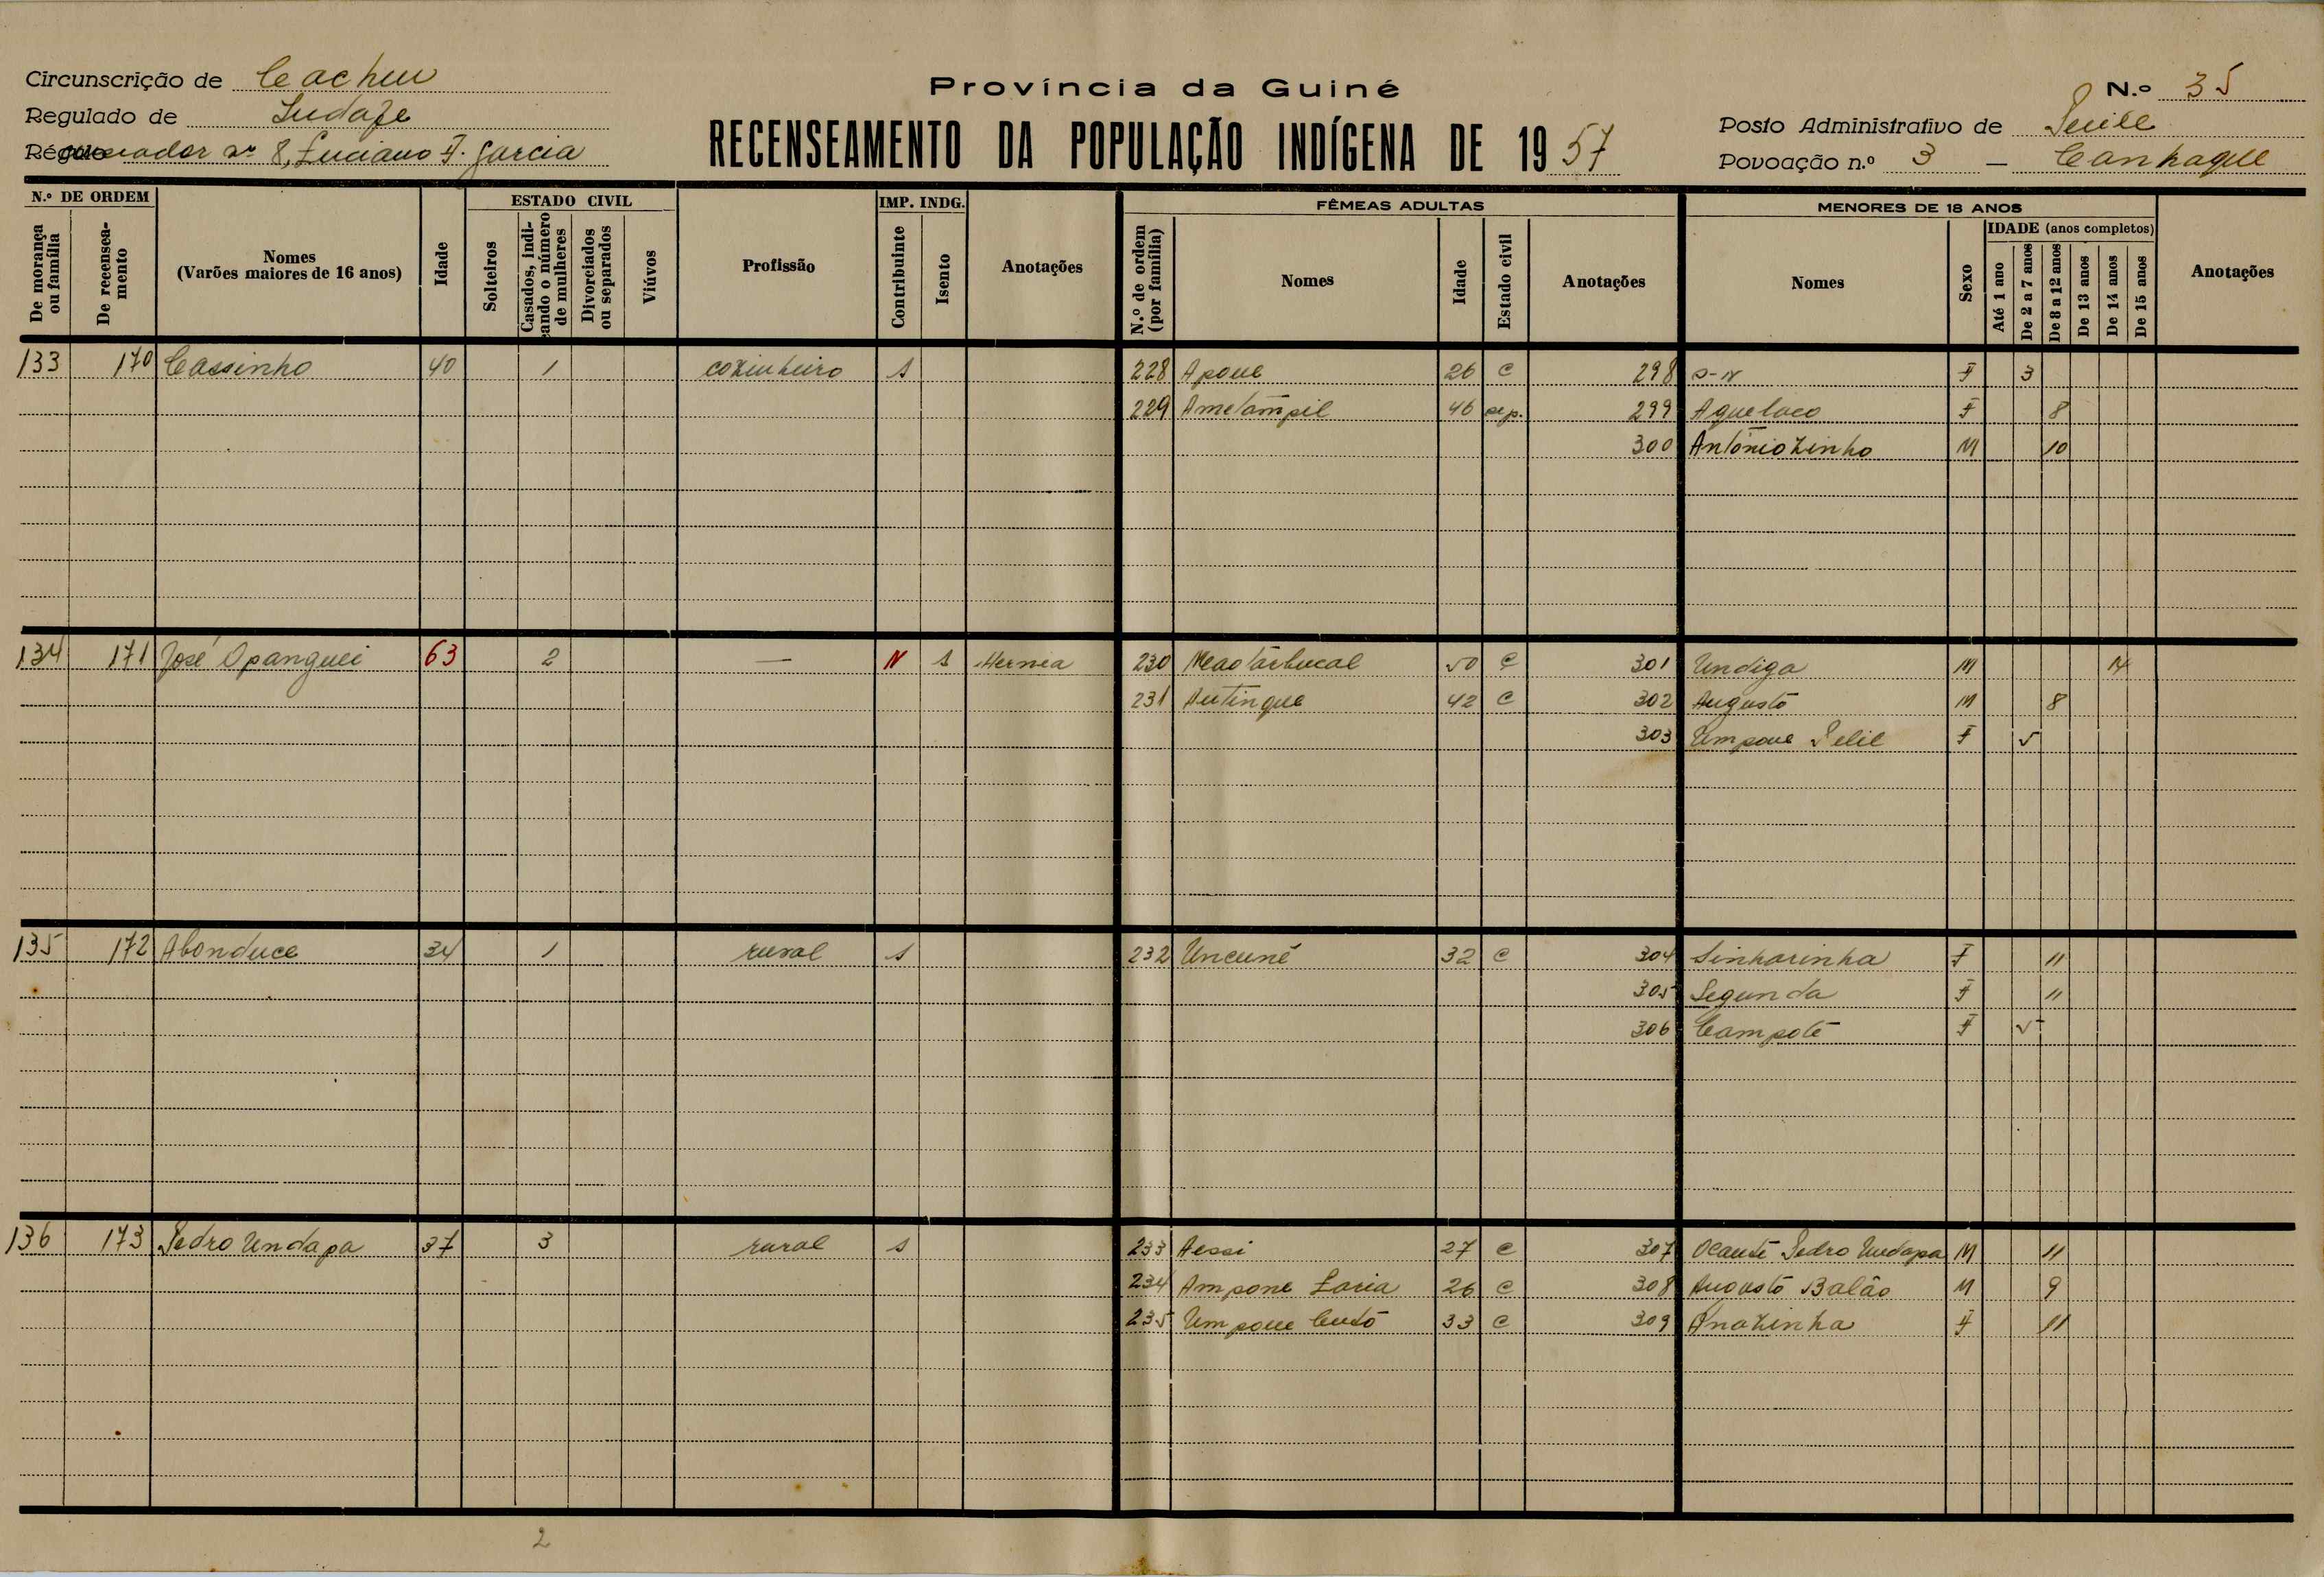 Circunscrição de Cacheu
Província da Guiné
N.º 35
Regulado de
RECENSEAMENTO DA POPULAÇÃO INDÍGENA DE 1957
Posto Administrativo de
8, Luciano F. Garcia
Povoação n.º 3 — Canhaque
N.º DE ORDEM
De morança ou família
De recenseamento
Nomes
(Varões maiores de 16 anos)
Idade
ESTADO CIVIL
Solteiros
Casados, indicando o número de mulheres
Divorciados ou separados
Viúvos
Profissão
IMP. INDG.
Contribuinte
Isento
Anotações
FÊMEAS ADULTAS
N.º de ordem (por família)
Nomes
Idade
Estado civil
Anotações
MENORES DE 18 ANOS
Nomes
Sexo
IDADE (anos completos)
Até 1 ano
De 2 a 7 anos
De 8 a 12 anos
De 13 anos
De 14 anos
De 15 anos
Anotações
133 170 Cassinho 40 1 cozinheiro s 228 Apoue 26 C 298 s-n F 3
229 Ametampil 46 sep. 299 Agueloco F 8
300 Antóniozinho M 10
134 171 José Opanguei 63 2 — N s Hernea 230 50 C 301 Undiga M 14
231 Autinque 42 C 302 Augusto M 8
303 Umpoue F 5
135 172 Abonduce 34 1 rural s 232 Uncuné 32 C 304 Sinharinha F 11
305 Segunda F 11
306 Campoté F 5
136 173 Pedro Undapa 37 3 rural s 233 Aessi 27 C 307 Ocanté Pedro Undapa M 11
234 Ampone Laria 26 C 308 Augusto Balão M 9
235 Umpoue Cutó 33 C 309 Anazinha F 11
2